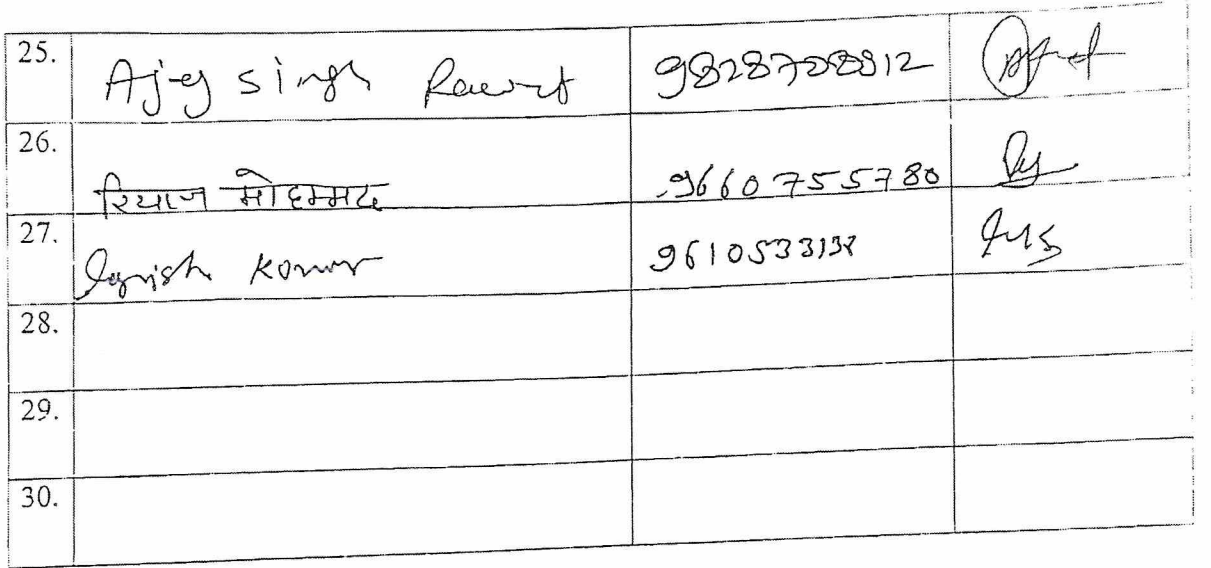 25. Ajay singh Rawat 9828708812
26. रियाज मोहम्मद 9660755780
27. 9610533138
28.
29.
30.